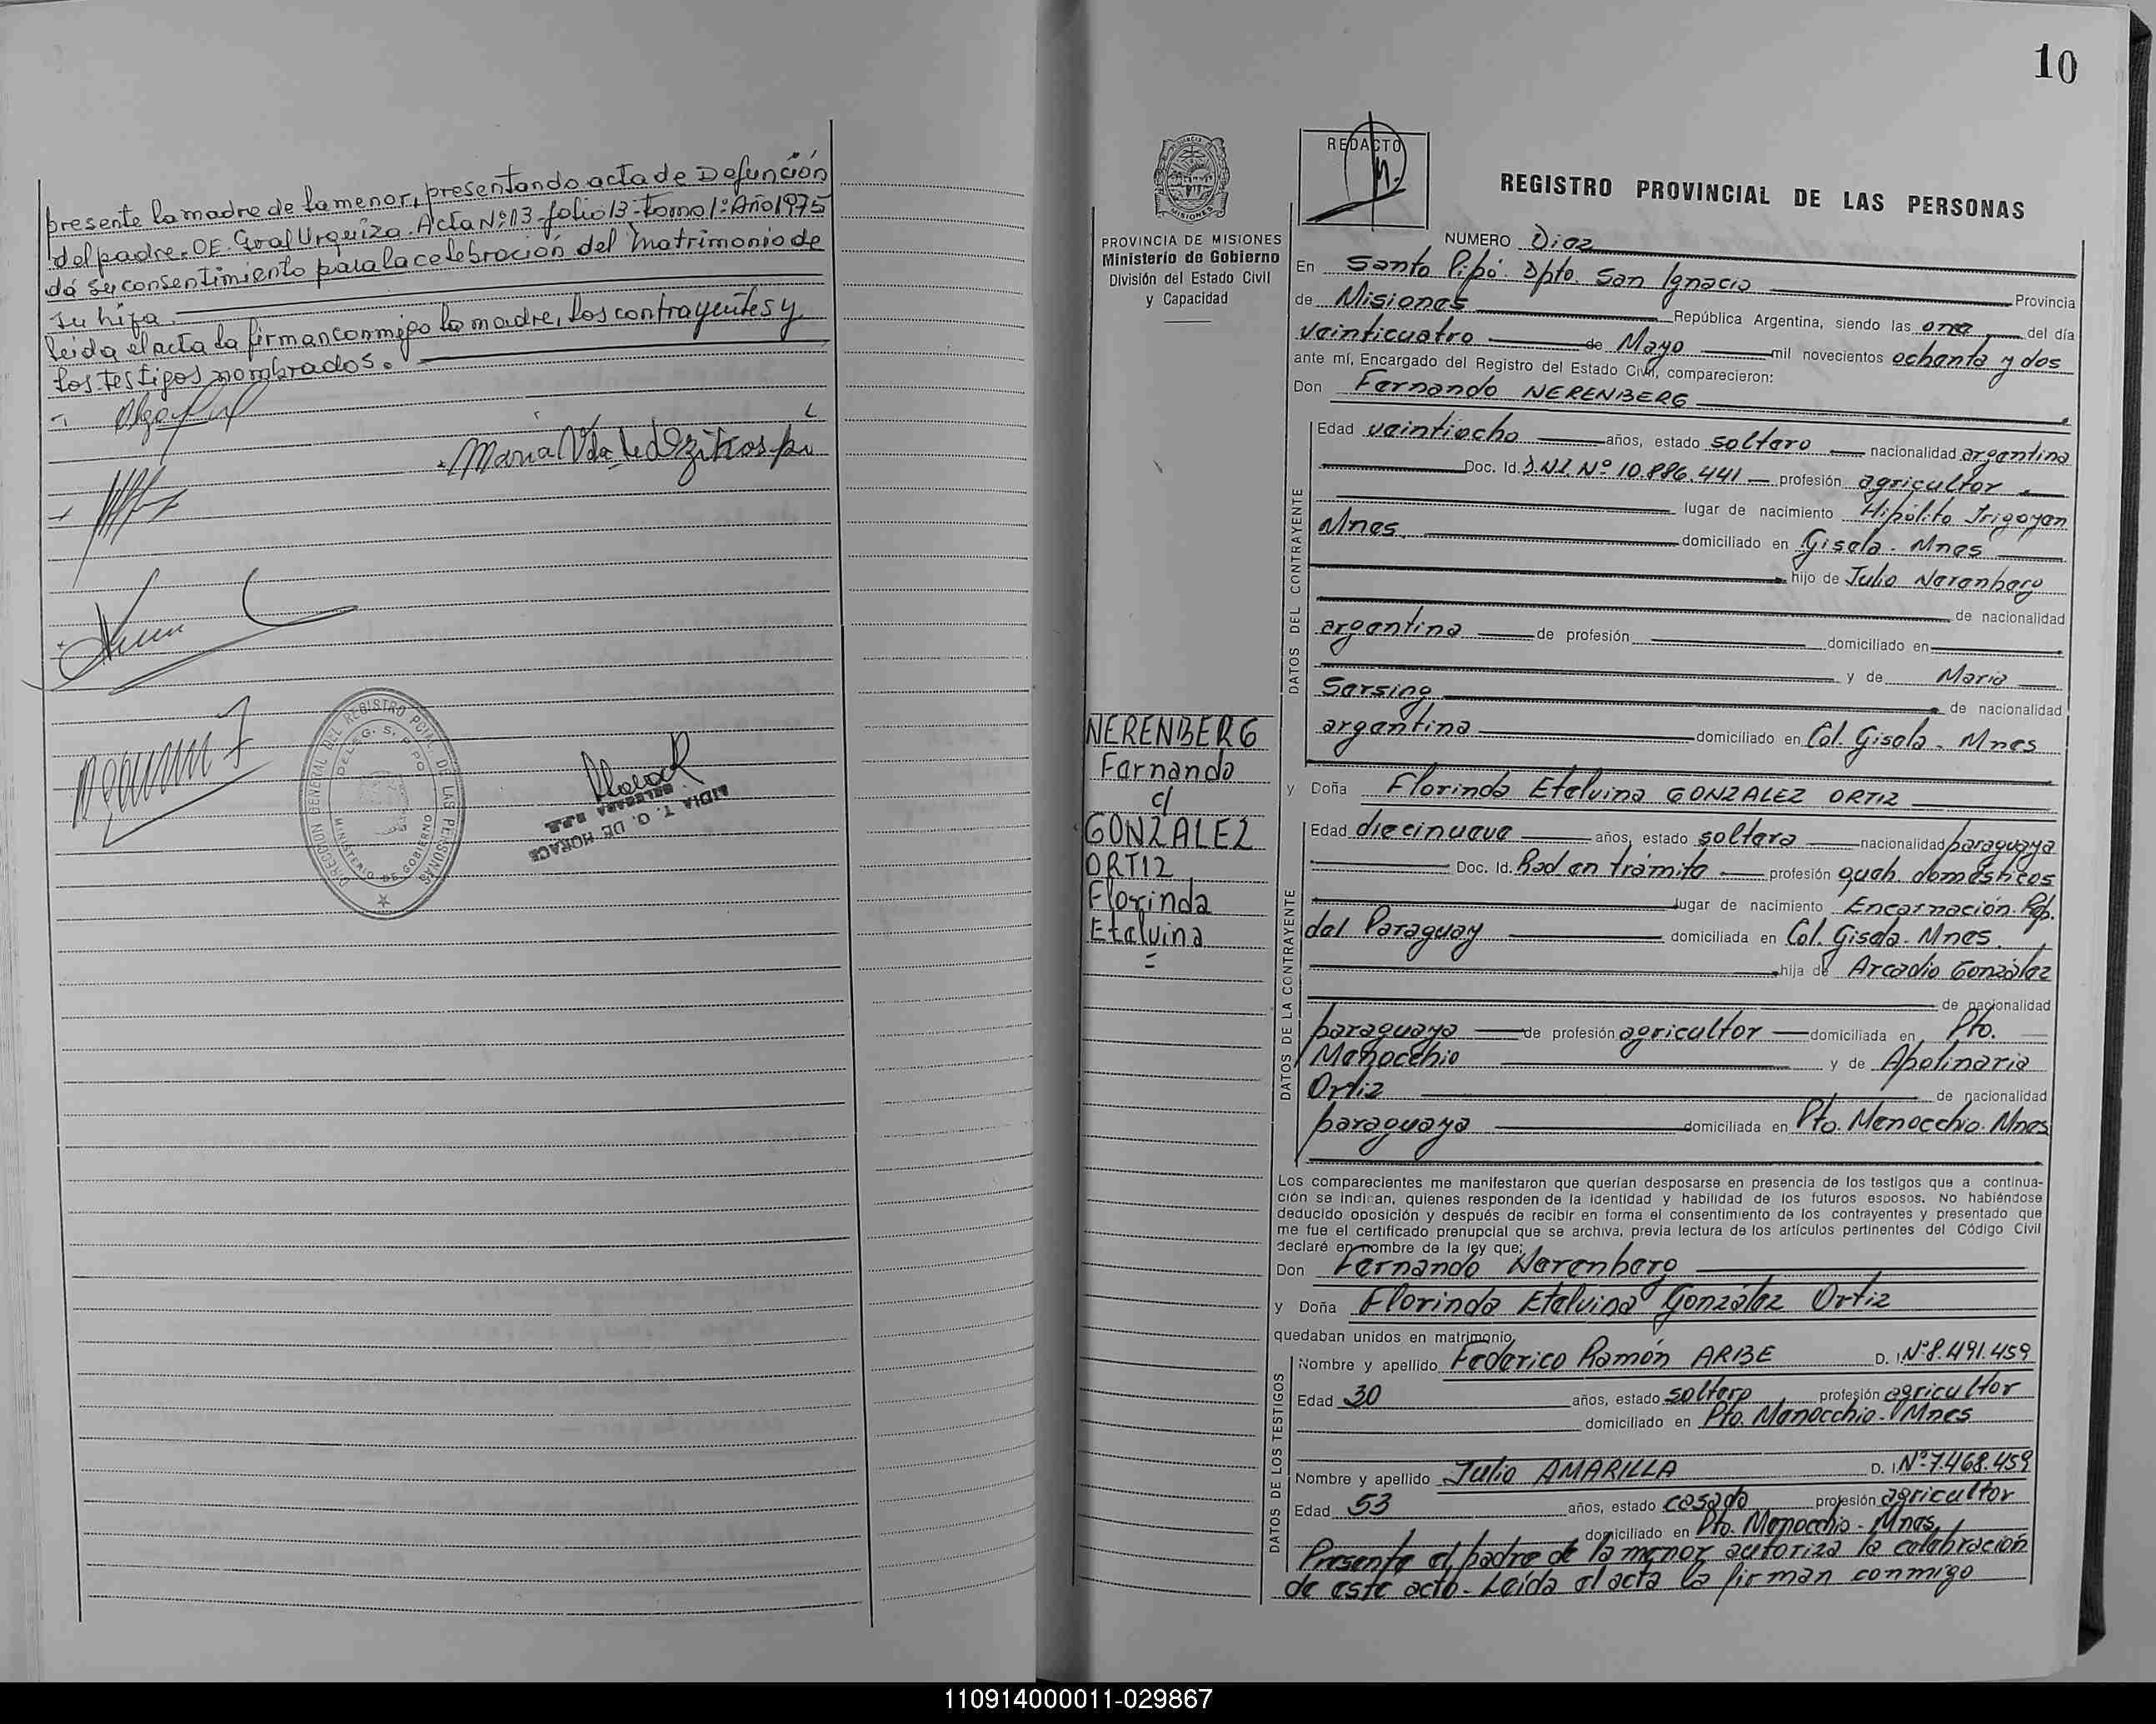 presente la madre de la menor, presentando acta de Defunción
del padre. OE. Gral Urquiza. Acta Nº 13 - folio 13 - tomo 1º Año 1975
dá su consentimiento para la celebración del matrimonio de
su hija.
leida el acta la firman conmigo la madre, los contrayentes y
los testigos nombrados.
María Vda de
DIRECCION GENERAL DEL REGISTRO PCIAL. DE LAS PERSONAS
DELEG. S. PIPO
MINISTERIO DE GOBIERNO
LIDIA T. G. DE
10
REDACTO
REGISTRO PROVINCIAL DE LAS PERSONAS
MISIONES
PROVINCIA DE MISIONES
Ministerio de Gobierno
División del Estado Civil
y Capacidad
NUMERO Diez
En Santo Pipó. Dpto. San Ignacio Provincia
de Misiones República Argentina, siendo las once del día
veinticuatro de Mayo mil novecientos ochenta y dos
ante mí, Encargado del Registro del Estado Civil, comparecieron:
Don Fernando NERENBERG
DATOS DEL CONTRAYENTE
Edad veintiocho años, estado soltero nacionalidad argentina
Doc. Id. D.N.I. Nº 10.886.441 profesión agricultor
lugar de nacimiento Hipólito Irigoyen
Mnes. domiciliado en Gisela. Mnes
hijo de Julio Nerenberg
de nacionalidad
argentina de profesión domiciliado en
y de Maria
Sersing de nacionalidad
argentina domiciliado en Col. Gisela. Mnes
NERENBERG
Fernando
c/
GONZALEZ
ORTIZ
Florinda
Etelvina
y Doña Florinda Etelvina GONZALEZ ORTIZ
DATOS DE LA CONTRAYENTE
Edad diecinueve años, estado soltera nacionalidad paraguaya
Doc. Id. Rad en trámite profesión queh. domésticos
lugar de nacimiento Encarnación. Rep.
del Paraguay domiciliada en Col. Gisela. Mnes.
hija de Arcadio González
de nacionalidad
paraguaya de profesión agricultor domiciliada en Pto.
Menocchio y de Apolinaria
Ortiz de nacionalidad
paraguaya domiciliada en Pto. Menocchio. Mnes
Los comparecientes me manifestaron que querían desposarse en presencia de los testigos que a continua-
ción se indican, quienes responden de la identidad y habilidad de los futuros esposos. No habiéndose
deducido oposición y después de recibir en forma el consentimiento de los contrayentes y presentado que
me fue el certificado prenupcial que se archiva, previa lectura de los artículos pertinentes del Código Civil
declaré en nombre de la ley que:
Don Fernando Nerenberg
y Doña Florinda Etelvina González Ortiz
quedaban unidos en matrimonio
DATOS DE LOS TESTIGOS
Nombre y apellido Federico Ramón ARBE D. I. Nº 8.491.459
Edad 30 años, estado soltero profesión agricultor
domiciliado en Pto. Menocchio - Mnes
Nombre y apellido Julio AMARILLA D. I. Nº 7.468.459
Edad 53 años, estado casado profesión agricultor
domiciliado en Pto. Menocchio - Mnes.
Presente el padre de la menor autoriza la celebración
de este acto - Leída el acta la firman conmigo
110914000011-029867